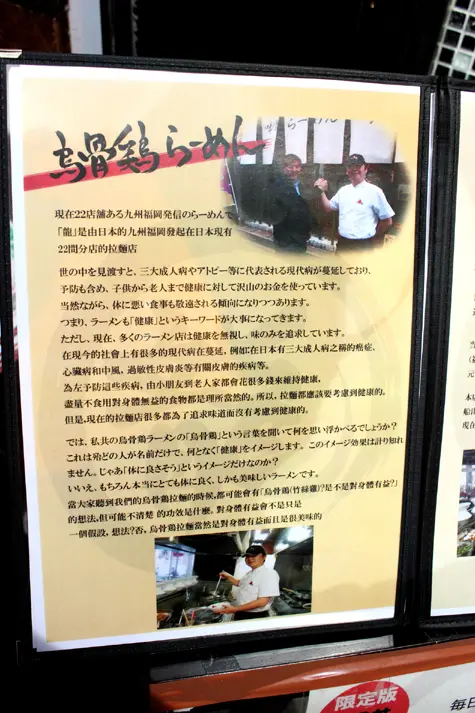 烏骨鶏らーめん
現在22店舗ある九州福岡発信のらーめんで
「龍」是由日本的九州福岡發起在日本現有
22間分店的拉麵店
世の中を見渡すと、三大成人病やアトピー等に代表される現代病が蔓延しており、
予防も含め、子供から老人まで健康に対して沢山のお金を使っています。
当然ながら、体に悪い食事も敬遠される傾向になりつつあります。
つまり、ラーメンも「健康」というキーワードが大事になってきます。
ただし、現在、多くのラーメン店は健康を無視し、味のみを追求しています。
在現今的社會上有很多的現代病在蔓延，例如:在日本有三大成人病之稱的癌症、
心臟病和中風，過敏性皮膚炎等有關皮膚的疾病等。
為左予防這些疾病，由小朋友到老人家都會花很多錢來維持健康，
盡量不食用對身體無益的食物都是理所當然的。所以，拉麵都應該要考慮到健康的。
但是，現在的拉麵店很多都為了追求味道而沒有考慮到健康的。
では、私共の烏骨鶏ラーメンの「烏骨鶏」という言葉を聞いて何を思い浮かべるでしょうか?
これは殆どの人が名前だけで、何となく「健康」をイメージします。このイメージ効果は計り知れ
ません。じゃあ「体に良さそう」というイメージだけなのか?
いいえ、もちろん本当にとても体に良く、しかも美味しいラーメンです。
當大家聽到我們的烏骨鶏拉麵的時候，都可能會有「烏骨鶏(竹絲雞)?是不是對身體有益?」
的想法，但可能不清楚 的功效是什麼。對身體有益會不是只是
一個假設，想法?否，烏骨鶏拉麵當然是對身體有益而且是很美味的
限定版
毎日